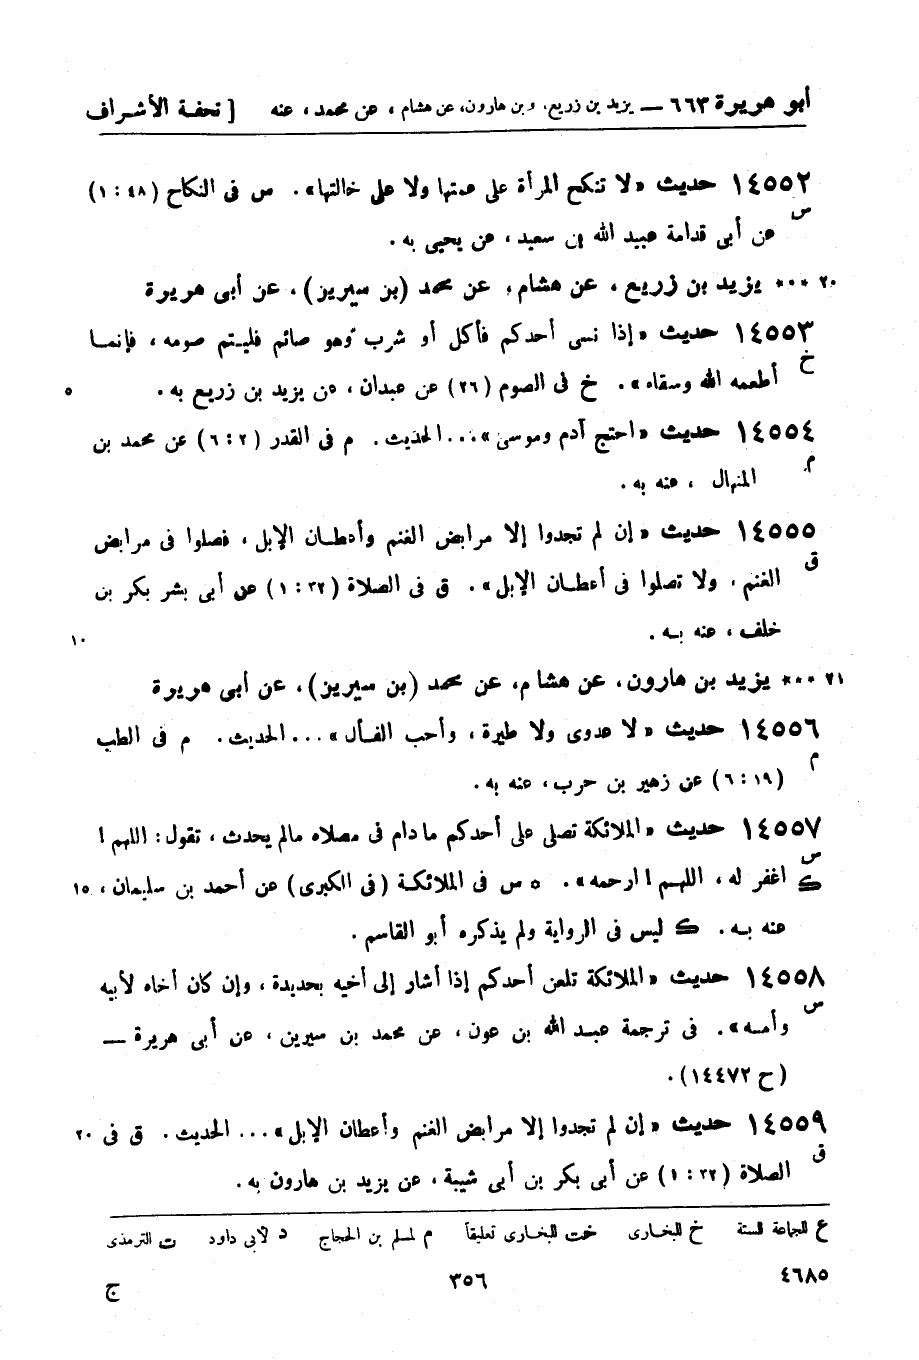 أبو هريرة ٦٦٣ — يزيد بن زريع، وبن هارون، عن هشام، عن محمد، عنه [ تحفة الأشراف
١٤٥٥٢ حديث «لا تنكح المرأة على عمتها ولا على خالتها». س فى النكاح (٤٨ : ١)
س
عن أبى قدامة عبيد الله بن سعيد، عن يحيى به.
٢٠ *** يزيد بن زريع، عن هشام، عن محمد (بن سيرين)، عن أبى هريرة
١٤٥٥٣ حديث «إذا نسى أحدكم فأكل أو شرب وهو صائم فليتم صومه، فإنما
خ
أطعمه الله وسقاه». خ فى الصوم (٢٦) عن عبدان، عن يزيد بن زريع به. ٥
١٤٥٥٤ حديث «احتج آدم وموسى»... الحديث. م فى القدر (٢ : ٦) عن محمد بن
م
المنهال، عنه به.
١٤٥٥٥ حديث «إن لم تجدوا إلا مرابض الغنم وأعطان الإبل، فصلوا فى مرابض
ق
الغنم، ولا تصلوا فى أعطان الإبل». ق فى الصلاة (٣٢ : ١) عن أبى بشر بكر بن
خلف، عنه به. ١٠
٢١ *** يزيد بن هارون، عن هشام، عن محمد (بن سيرين)، عن أبى هريرة
١٤٥٥٦ حديث «لا عدوى ولا طيرة، وأحب الفأل»... الحديث. م فى الطب
م
(١٩ : ٦) عن زهير بن حرب، عنه به.
١٤٥٥٧ حديث «الملائكة تصلى على أحدكم مادام فى مصلاه مالم يحدث، تقول: اللهم ا
س
ك اغفر له، اللهم ا ارحمه». ٥ س فى الملائكة (فى الكبرى) عن أحمد بن سليمان، ١٥
عنه به. ك ليس فى الرواية ولم يذكره أبو القاسم.
١٤٥٥٨ حديث «الملائكة تلعن أحدكم إذا أشار إلى أخيه بحديدة، وإن كان أخاه لأبيه
س
وأمه». فى ترجمة عبد الله بن عون، عن محمد بن سيرين، عن أبى هريرة —
(ح ١٤٤٧٢).
١٤٥٥٩ حديث «إن لم تجدوا إلا مرابض الغنم وأعطان الإبل»... الحديث. ق فى ٢٠
ق
الصلاة (٣٢ : ١) عن أبى بكر بن أبى شيبة، عن يزيد بن هارون به.
ع للجماعة الستة خ للبخارى خت للبخارى تعليقاً م لمسلم بن الحجاج د لابى داود ت الترمذى
٤٦٨٥ ٣٥٦ ج